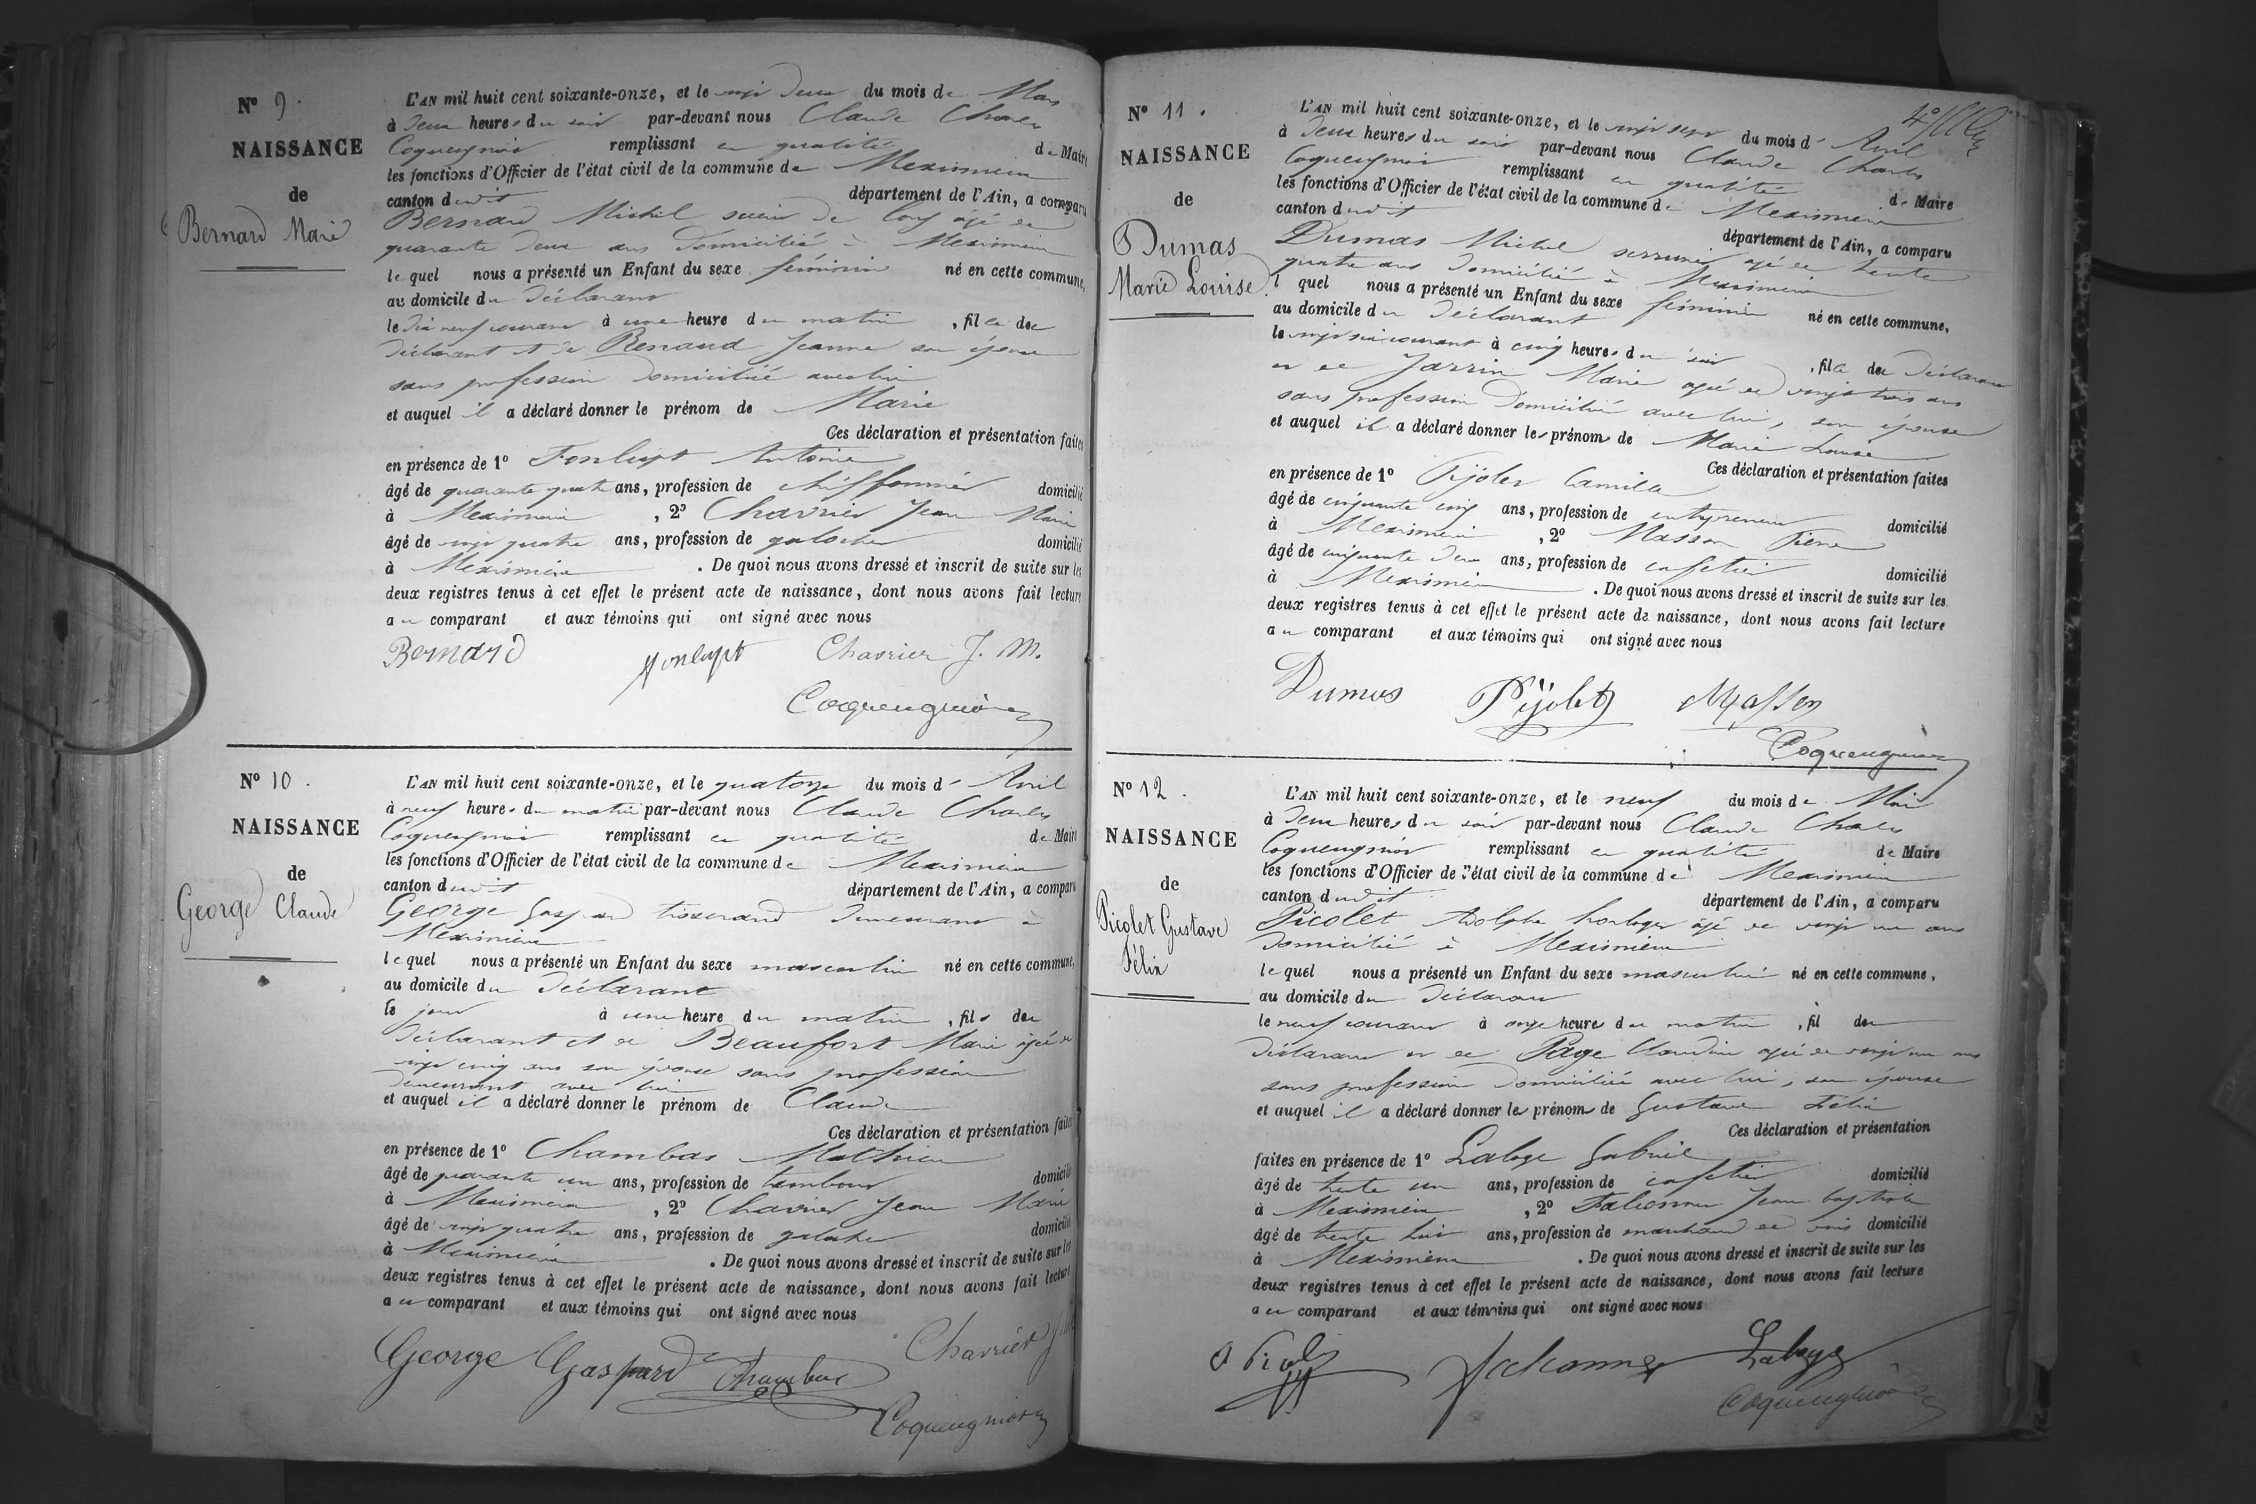 N° 9.
NAISSANCE
de
Bernard Marie
L'AN mil huit cent soixante-onze, et le vingt deux du mois de Mars
à deux heures du soir par-devant nous Claude Charles
Coqueugniot remplissant en qualité de Maire
les fonctions d'Officier de l'état civil de la commune de Meximieux
canton dudit département de l'Ain, a comparu
Bernard Michel scieur de long âgé de
quarante deux ans domicilié à Meximieux
lequel nous a présenté un Enfant du sexe féminin né en cette commune,
au domicile du déclarant
le dix neuf courant à une heure du matin, fille du
déclarant et de Renaud Jeanne son épouse
sans profession domiciliée avec lui
et auquel il a déclaré donner le prénom de Marie
Ces déclaration et présentation faites
en présence de 1° Fonlupt Antoine
âgé de quarante quatre ans, profession de chiffonnier domicilié
à Meximieux, 2° Charrier Jean Marie
âgé de vingt quatre ans, profession de galocher domicilié
à Meximieux. De quoi nous avons dressé et inscrit de suite sur les
deux registres tenus à cet effet le présent acte de naissance, dont nous avons fait lecture
au comparant et aux témoins qui ont signé avec nous
Bernard Fonlupt Charrier J. M.
Coqueugniot
N° 10.
NAISSANCE
de
George Claude
L'AN mil huit cent soixante-onze, et le quatorze du mois d' Avril
à neuf heures du matin par-devant nous Claude Charles
Coqueugniot remplissant en qualité de Maire
les fonctions d'Officier de l'état civil de la commune de Meximieux
canton dudit département de l'Ain, a comparu
George Gaspard tisserand demeurant à
Meximieux
lequel nous a présenté un Enfant du sexe masculin né en cette commune,
au domicile du déclarant
le jour à une heure du matin, fils du
déclarant et de Beaufort Marie âgée de
vingt cinq ans son épouse sans profession
demeurant avec lui
et auquel il a déclaré donner le prénom de Claude
Ces déclaration et présentation faites
en présence de 1° Chambas Mathieu
âgé de quarante un ans, profession de tambour domicilié
à Meximieux, 2° Charrier Jean Marie
âgé de vingt quatre ans, profession de galocher domicilié
à Meximieux. De quoi nous avons dressé et inscrit de suite sur les
deux registres tenus à cet effet le présent acte de naissance, dont nous avons fait lecture
au comparant et aux témoins qui ont signé avec nous
George Gaspard Chambas Charrier J
Coqueugniot
N° 11.
NAISSANCE
de
Dumas
Marie Louise
L'AN mil huit cent soixante-onze, et le vingt sept du mois d' Avril
à deux heures du soir par-devant nous Claude Charles
Coqueugniot remplissant en qualité de Maire
les fonctions d'Officier de l'état civil de la commune de Meximieux
canton dudit département de l'Ain, a comparu
Dumas Michel serrurier âgé de trente
quatre ans domicilié à Meximieux
l quel nous a présenté un Enfant du sexe féminin né en cette commune,
au domicile du déclarant
le vingt six courant à cinq heures du soir, fille du déclarant
et de Jarrin Marie âgée de vingt trois ans
sans profession domiciliée avec lui, son épouse
et auquel il a déclaré donner les prénoms de Marie Louise
Ces déclaration et présentation faites
en présence de 1° Pijolet Camille
âgé de cinquante cinq ans, profession de entrepreneur domicilié
à Meximieux, 2° Masson Pierre
âgé de cinquante deux ans, profession de cafetier domicilié
à Meximieux. De quoi nous avons dressé et inscrit de suite sur les
deux registres tenus à cet effet le présent acte de naissance, dont nous avons fait lecture
au comparant et aux témoins qui ont signé avec nous
Dumas Pijolet Masson
Coqueugniot
N° 12.
NAISSANCE
de
Picolet Gustave
Félix
L'AN mil huit cent soixante-onze, et le neuf du mois de Mai
à deux heures du soir par-devant nous Claude Charles
Coqueugniot remplissant en qualité de Maire
les fonctions d'Officier de l'état civil de la commune de Meximieux
canton dudit département de l'Ain, a comparu
Picolet Adolphe horloger âgé de vingt un ans
domicilié à Meximieux
lequel nous a présenté un Enfant du sexe masculin né en cette commune,
au domicile du déclarant
le neuf courant à onze heures du matin, fil du
déclarant et de Page Claudine âgée de vingt un ans
sans profession domiciliée avec lui, son épouse
et auquel il a déclaré donner les prénoms de Gustave Félix
Ces déclaration et présentation
faites en présence de 1° Labaye Gabriel
âgé de trente un ans, profession de cafetier domicilié
à Meximieux, 2° Jean baptiste
âgé de trente huit ans, profession de marchand de vins domicilié
à Meximieux. De quoi nous avons dressé et inscrit de suite sur les
deux registres tenus à cet effet le présent acte de naissance, dont nous avons fait lecture
au comparant et aux témoins qui ont signé avec nous
A Picolet Labaye
Coqueugniot